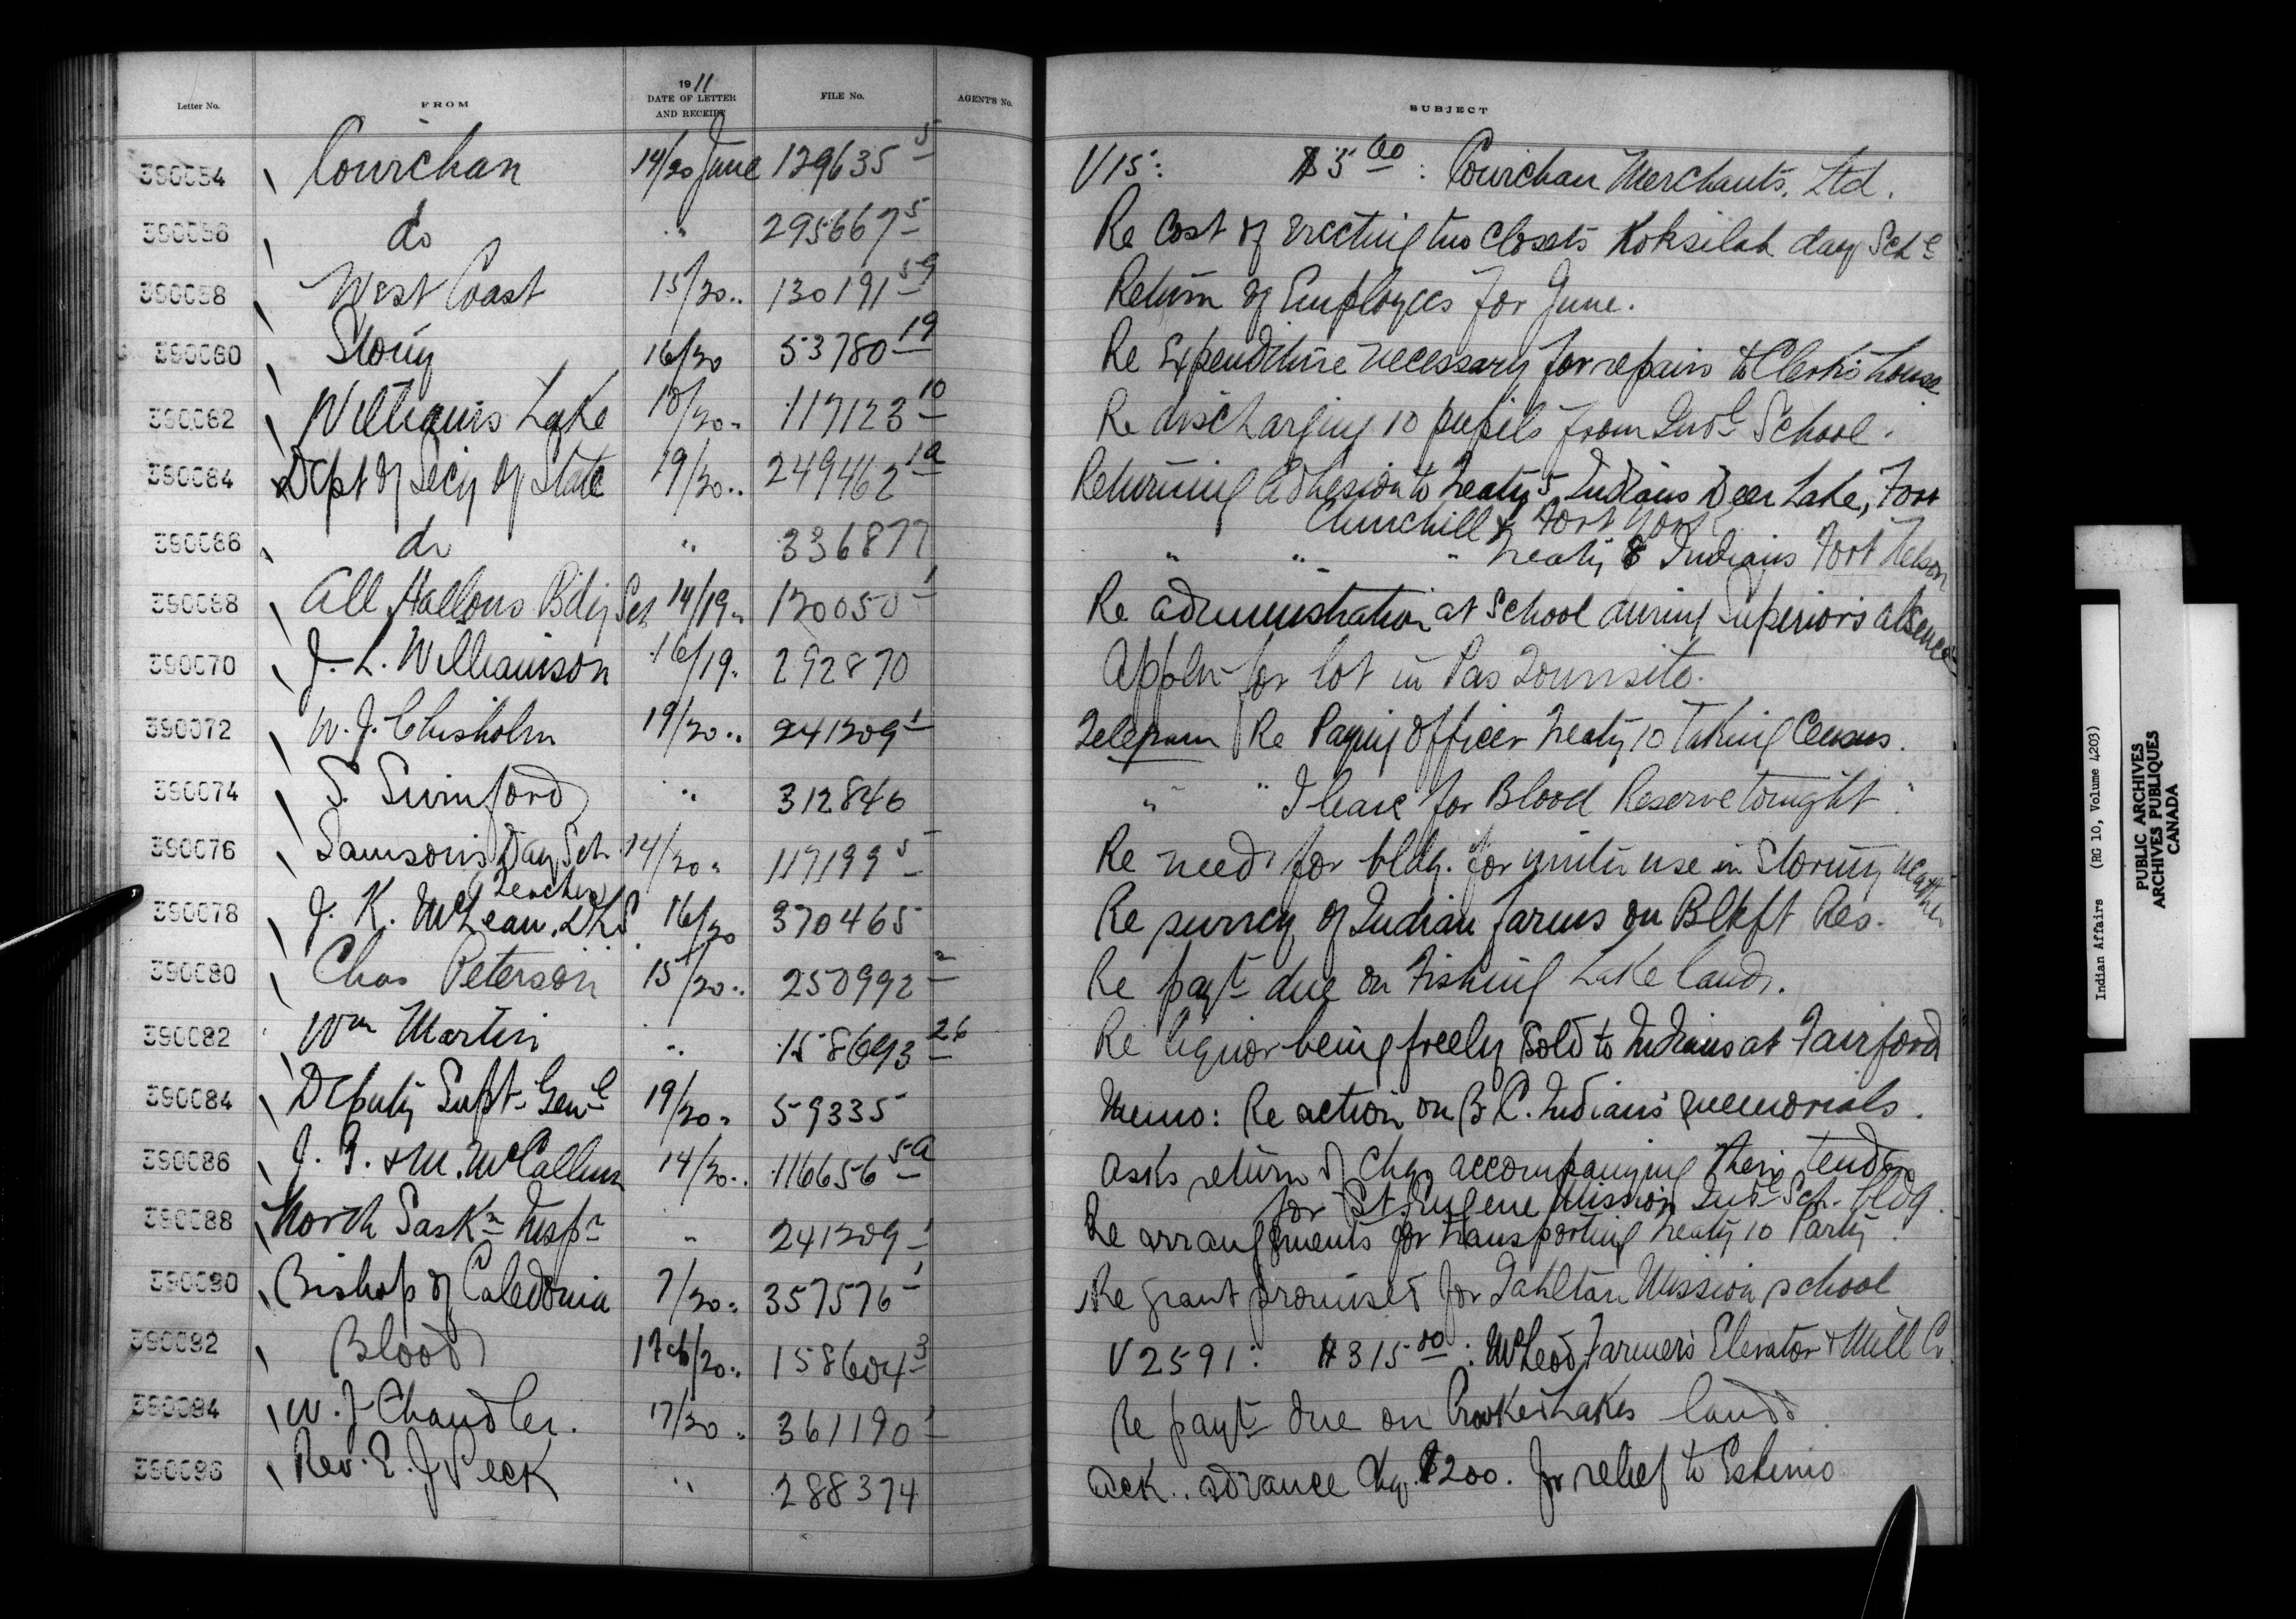 Letter No. FROM 1911 DATE OF LETTER AND RECEIPT FILE No. AGENT'S No. SUBJECT
390054 Cowichan 14/20 June 129635-5 V15: $5.00: Cowichan Merchants, Ltd.
390056 do " 295667-5 Re Cost of erecting two closets Koksilah day Schl
390058 West Coast 15/20 " 130191-59 Return of Employees for June.
390060 Stony 16/20 53780-19 Re Expenditure necessary for repairs to Clerk's house
390062 Williams Lake 10/20 " 117123-10 Re discharging 10 pupils from Indl School.
390064 Dept of Secy of State 19/20 " 249462-1a Returning Adhesion to Treaty 5 Indians Deer Lake, Fort
Churchill & Fort York
390066 do " 336877 " " " Treaty 8 Indians Fort Nelson
390068 All Hallows Bdig Sch 14/19 " 120050-1 Re administration at School during Superior's absence
390070 J. L. Williamson 16/19 " 292870 Appln for lot in Pas Townsite.
390072 W. J. Chisholm 19/20 " 241209-1 Telegram Re Paying Officer Treaty 10 Taking Census.
390074 S. Swinford " 312846 " " I leave for Blood Reserve tonight.
390076 Samson's Day Sch. 14/20 " 117199-5 Re need for bldg. for winter use in Stormy weather
Teacher
390078 J. K. McLean, DLS 16/20 370465 Re survey of Indian farms on Blkft Res.
390080 Chas Peterson 15/20 " 250992-2 Re payt due on Fishing Lake lands.
390082 Wm Martin " 158693-26 Re liquor being freely sold to Indians at Fairford
390084 Deputy Supt. Genl 19/20 " 59335 Memo: Re action on B.C. Indians' memorials.
390086 J. G. & M. McCallum 14/20 " 116656-5a Asks return of chq accompanying their tender
for St. Eugene Mission Indl Sch. bldg.
390088 North Saskn Inspr " 241209-1 Re arrangements for transporting Treaty 10 Party.
390090 Bishop of Caledonia 7/20 " 357576-1 Re grant promised for Tahltan Mission school
390092 Blood 17/20 " 158604-3 V2591: $315.00: McLeod Farmer's Elevator & Mill Co.
390094 W. J. Chandler. 17/20 " 361190-1 Re payt due on Crooked Lakes lands.
390096 Rev. E. J. Peck " 288374 Ack. advance chq. $200. for relief to Eskimo
Indian Affairs (RG 10, Volume 4203)
PUBLIC ARCHIVES
ARCHIVES PUBLIQUES
CANADA